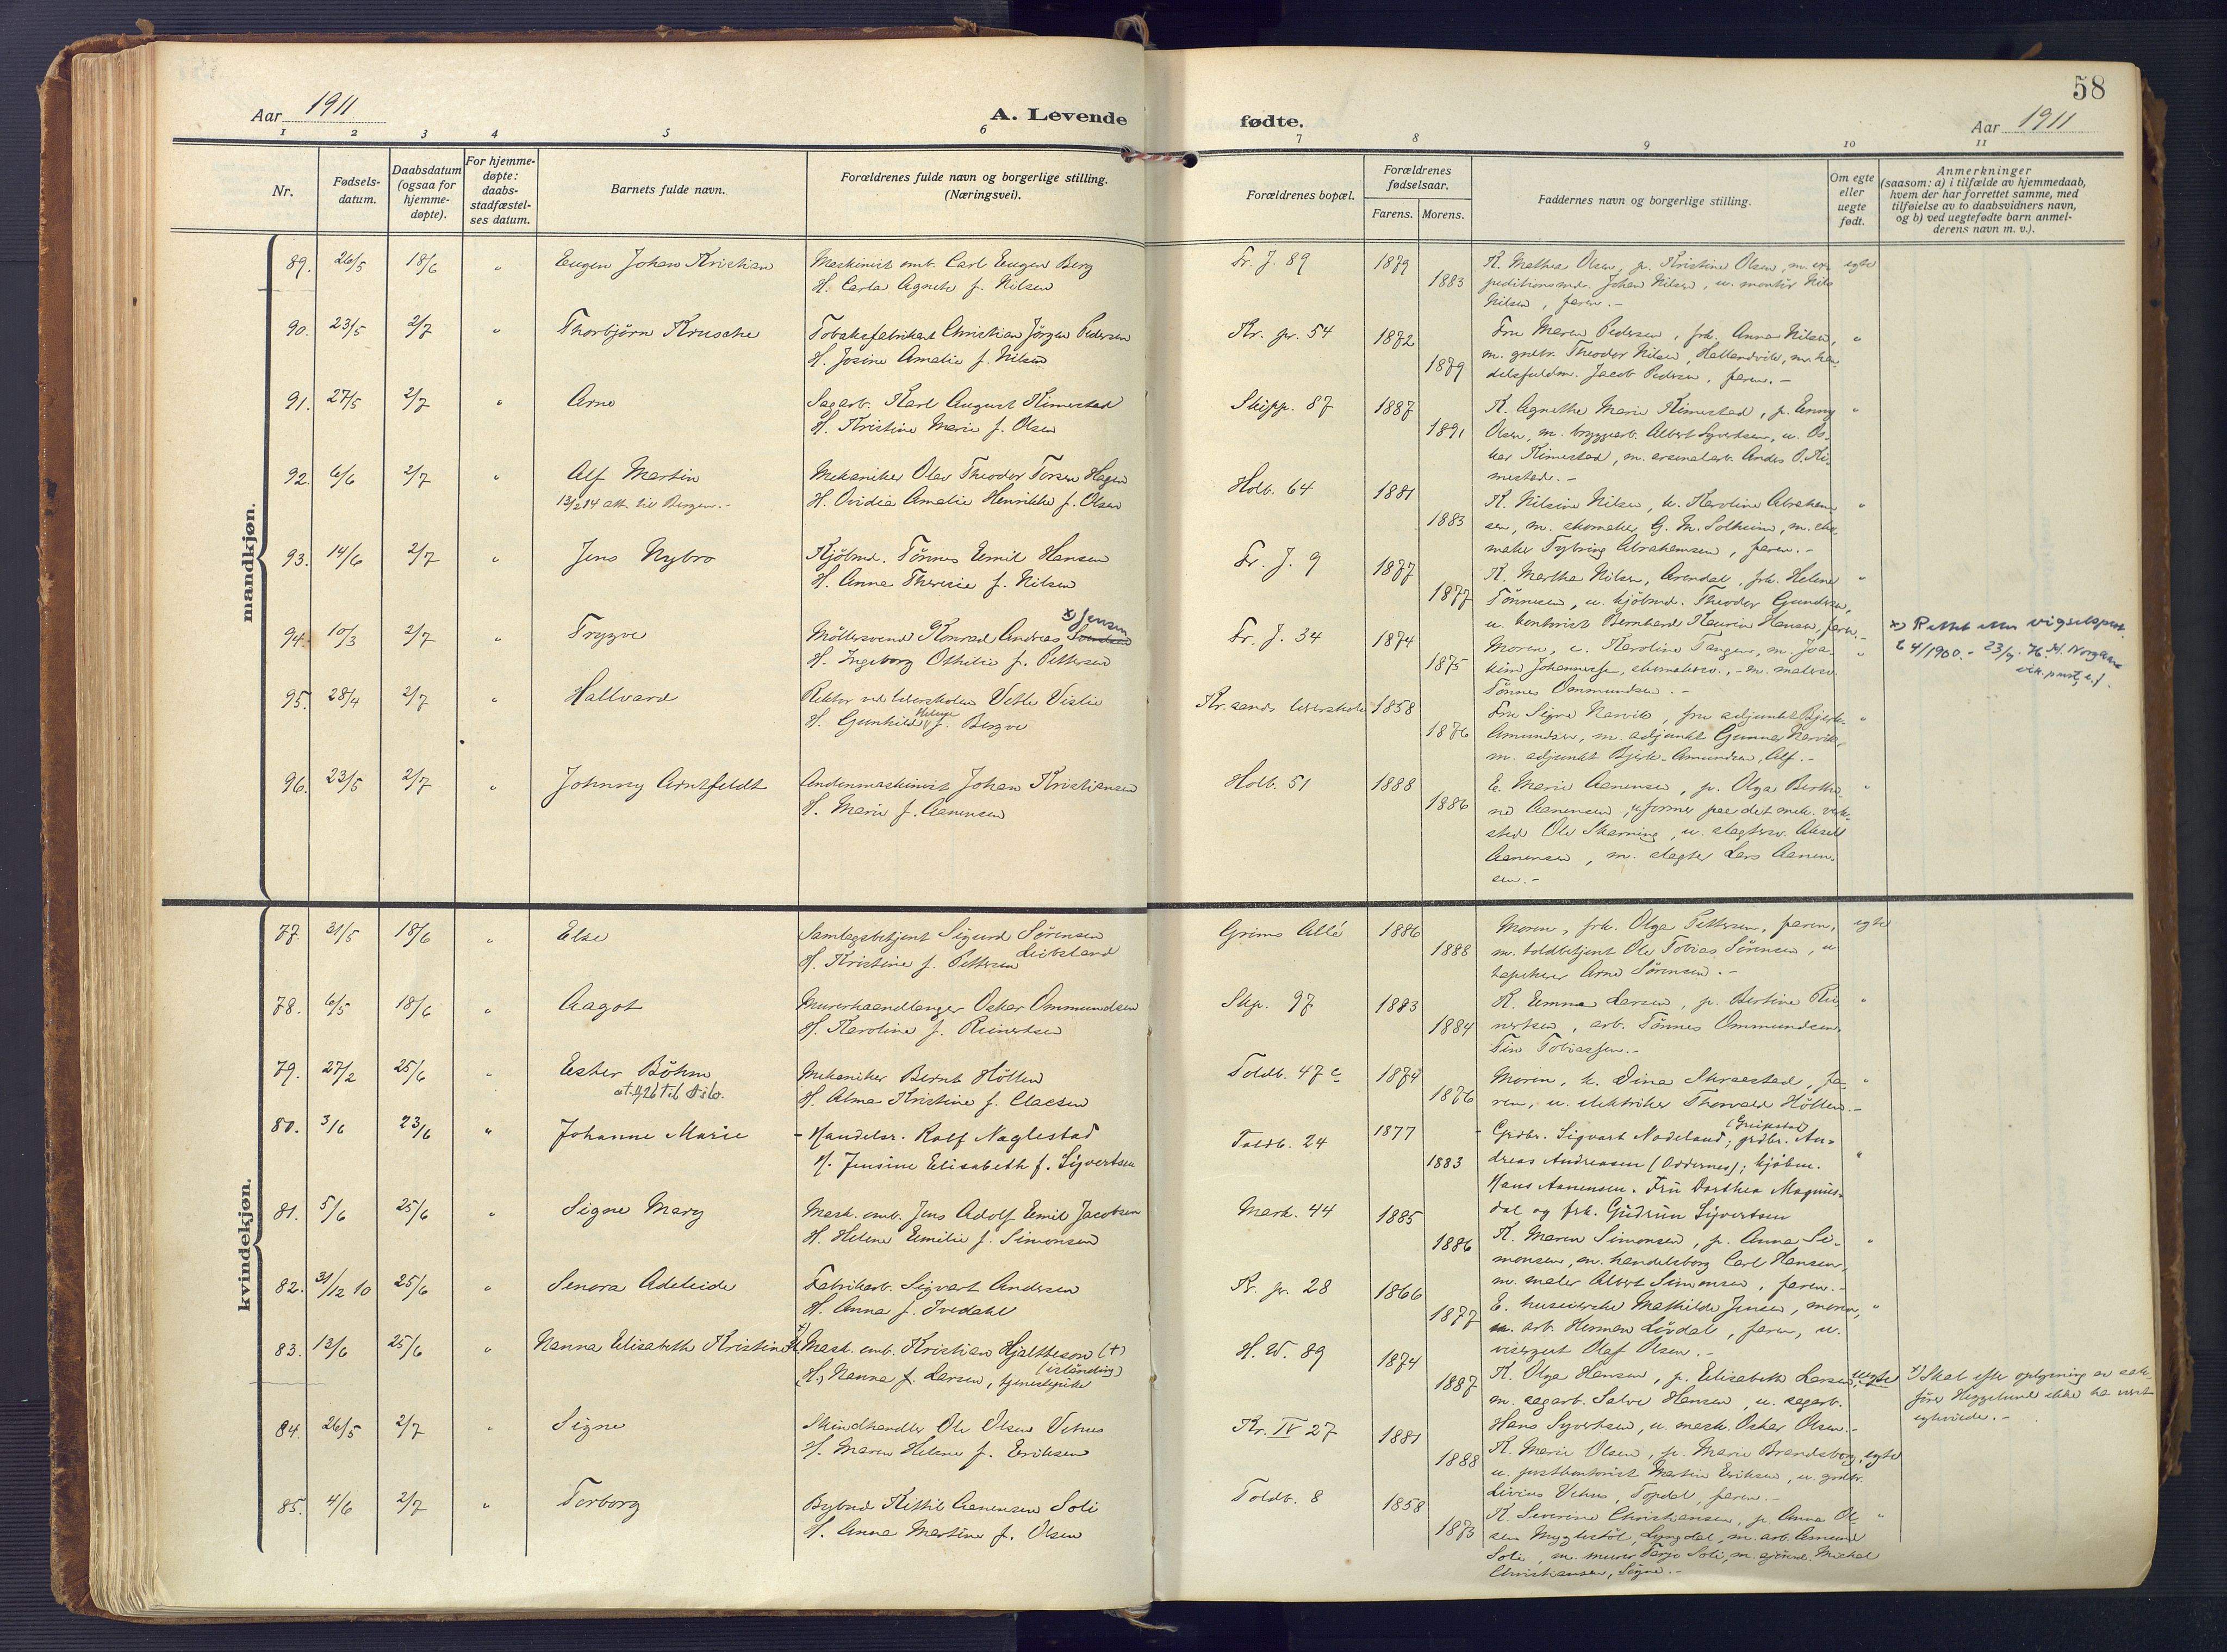 58
Aar 1911
A. Levende
fødte.
Aar 1911
1 2 3 4 5 6
7 8 9 10 11
Nr.
Fødsels-
datum.
Daabsdatum
(ogsaa for
hjemme-
døpte).
For hjemme-
døpte:
daabs-
stadfæstel-
ses datum.
Barnets fulde navn.
Forældrenes fulde navn og borgerlige stilling.
(Næringsvei).
Forældrenes bopæl.
Forældrenes
fødselsaar.
Farens. Morens.
Faddernes navn og borgerlige stilling.
Om egte
eller
uegte
født.
Anmerkninger
(saasom: a) i tilfælde av hjemmedaab,
hvem der har forrettet samme, med
tilføielse av to daabsvidners navn,
og b) ved uegtefødte barn anmel-
derens navn m. v.).
mandkjøn.
89. 26/5 18/6 " Eugen Johan Kristian
Maskinist omb. Carl Eugen Berg
H. Carla Agnete f. Nilsen
Fr. J. 89 1879
1883
K. Mathea Olsen, p. Kristine Olsen, m. ex- egte
peditionsmd. Johan Nilsen, u. montör Nils
Nilsen, faren.-
90. 23/5 2/7 " Thorbjörn Krusche
Tobaksfabrikant Christian Jörgen Pedersen
H. Josine Amalie f. Nilsen
Kr. gr. 54 1872
1879
Fru Maren Pedersen, frk. Anna Nilsen, "
m. grdbr. Theodor Nilsen, Hallandvik, m. han-
delsfuldm. Jacob Pedersen, faren.-
91. 27/5 2/7 " Arne
Sagarb. Karl August Kimestad
H. Kristine Marie f. Olsen
Skipp. 87 1887
1891
K. Agnethe Marie Kimestad, p. Enny "
Olsen, m. bryggearb. Albert Syvertsen, u. Os-
kar Kimestad, m. arsenalarb. Andr. O. Ki-
mestad.-
92. 6/6 2/7 " Alf Martin
13/2 14 att. til Bergen.-
Mekaniker Olav Theodor Torsen Hagen
H. Ovidia Amalie Henrikke f. Olsen
Holb. 64 1881
1883
K. Nilsine Nilsen, k. Karoline Abraham- "
sen, m. skomaker G. M. Solheim, m. sko-
maker Tybring Abrahamsen, faren.-
93. 14/6 2/7 " Jens Nybro
Kjöbmd. Tönnes Emil Hansen
H. Anna Theresie f. Nilsen
Fr. J. 9 1877
1877
K. Martha Nilsen, Arendal, frk. Helene "
Tönnesen, u. kjöbmd. Theodor Gundersen,
u. kontorist Bernhard Hansen, faren.-
94. 10/3 2/7 " Trygve
x) Jensen
Möllersvend Konrad Andreas Svendsen
H. Ingeborg Othilie f. Pettersen
Fr. J. 34 1874
1875
Moren, e. Karoline Tangen, m. Joa- "
kim Johannessen, skomakersv., m. malersv.
Tönnes Ommundsen.-
x) Rettet etter vigselsprot.
L 4/1900.- 23/9. H. H.
95. 28/4 2/7 " Hallvard
Rektor ved lærerskolen Vetle Vislie
Helene
H. Gunhild f. Bergve
Kr.sands lærerskole 1858
1876
Fru Signe Narvik, fru adjunkt Bjerk- "
Amundsen, m. adjunkt Gunnar Narvik,
m. adjunkt Bjerk-Amundsen, Alf.-
96. 23/5 2/7 " Johnny Arntfeldt
Andenmaskinist Johan Kristiansen
H. Marie f. Aanensen
Holb. 51 1888
1886
E. Marie Aanensen, p. Olga Berthi- "
ne Aanensen, u. former paa det mek. verk-
sted Ole Skarning, u. slagtersv. Aksell
Aanensen, m. slagter Lars Aanen-
sen.-
kvindekjøn.
77. 31/5 18/6 " Else
Samlagsbetjent Sigurd Sørensen
Leibsland
H. Kristine f. Pettersen
Grims Allé 1886
1888
Moren, frk. Olga Pettersen, faren, egte
m. toldbetjent Ole Tobias Sörensen, u.
tapetserer Arne Sörensen.-
78. 6/5 18/6 " Aagot
Murerhaandlanger Oskar Ommundsen
H. Karoline f. Reinertsen
Skp. 97 1883
1884
K. Emma Larsen, p. Bertine Rei- "
nertsen, arb. Tönnes Ommundsen,
Tin Tobiassen.-
79. 27/2 25/6 " Ester Böhm
Mekaniker Bernt Hölten
H. Alma Kristine f. Claesen
Toldb. 47 c 1874
1876
Moren, k. Dina Skraastad, fa- "
ren, u. elektriker Thorvald Hölten.-
80. 3/6 23/6 " Johanne Marie
- Handelsr. Rolf Naglestad
H. Jensine Elisabeth f. Sigvertsen
Toldb. 24 1877
1883
(Greipstad)
- Grdbr. Sigvart Nodeland; grdbr. An-
dreas Andreasen (Oddernes); kjöbm. "
Hans Aanensen. Fru Dorthea Magnus-
dal og frk. Gudrun Sigvertsen
81. 5/6 25/6 " Signe Mary
Mask. omb. Jens Adolf Emil Jacobsen
H. Helene Emilie f. Simonsen
Mark. 44 1885
1886
K. Maren Simonsen, p. Anna Si- "
monsen, m. handelsborg. Carl Hansen,
m. maler Albert Simonsen, faren.-
82. 31/12 10 25/6 " Senora Adeleide
Fabrikarb. Sigvart Andersen
H. Anna f. Ivedahl
Kr. gr. 28 1866
1877
E. huseierske Mathilde Jensen, moren, "
m. arb. Herman Livdal, faren, u.
visergut Olaf Olsen.-
83. 13/6 25/6 " Nanna Elisabeth Kristine
x) Mask. omb. Kristian Hjaltheson (+)
(islænding)
(H.) Nanna f. Larsen, tjenestepike
H. W. 89 1874
1887
K. Olga Hansen, p. Elisabeth Larsen, uegte
m. sagarb. Salve Hansen, u. sagarb.
Hans Syvertsen, u. mask. Oskar Olsen.-
x) Skal efter oplysning av sak-
förer Heggelund ikke ha vært
egteviede.-
84. 26/5 2/7 " Signe
Skindhandler Ole Olsen Vehus
H. Maren Helene f. Eriksen
Kr. IV 27 1881
1888
K. Marie Olsen, p. Marie Brandsborg, egte
u. postkontorist Martin Eriksen, u. grdbr.
Livius Vehus, Topdal, faren.-
85. 4/6 2/7 " Torborg
Bybud Kittil Aanensen Soli
H. Anna Martine f. Olsen
Toldb. 8 1858
1873
K. Severine Christiansen, p. Anna Ol- "
sen Myglestöl, Lyngdal, m. arb. Aamund
Soli, m. murer Terje Soli, m. Michal
Christiansen, Søgne.-